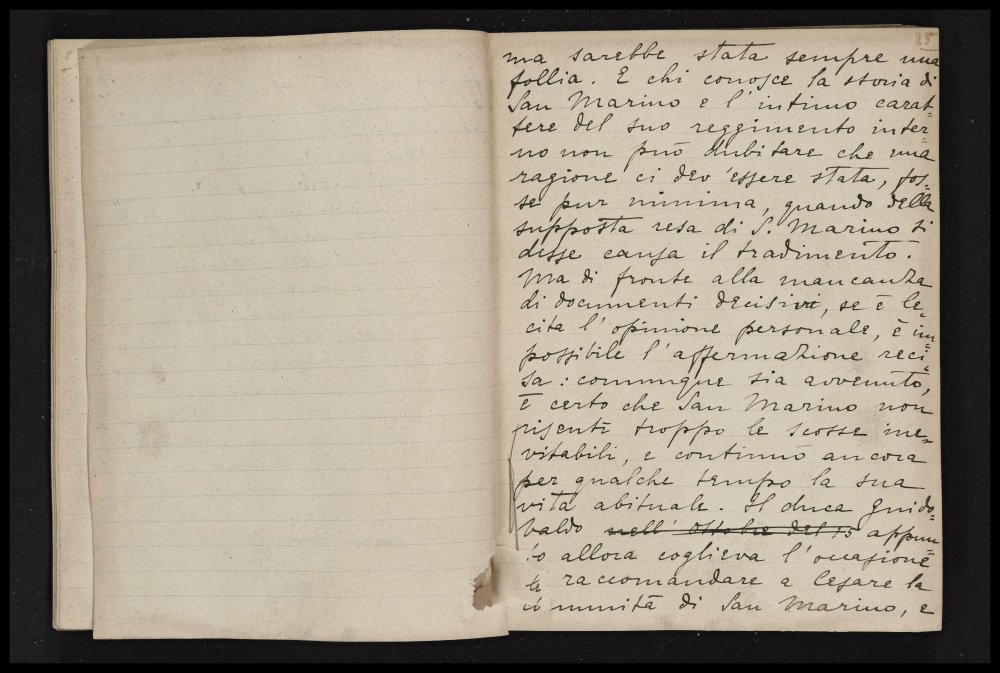 25
ma sarebbe stata sempre una
follia. E chi conosce la storia di
San Marino e l'intimo carat=
tere del suo reggimento inter=
no non può dubitare che una
ragione ci dev'essere stata, fos=
se pur minima, quando della
supposta resa di S. Marino si
disse causa il tradimento.
Ma di fronte alla mancanza
di documenti decisivi, se è le=
cita l'opinione personale, è im=
possibile l'affermazione reci=
sa: comunque sia avvenuto,
è certo che San Marino non
risentì troppo le scosse ine=
vitabili, e continuò ancora
per qualche tempo la sua
vita abituale. Il duca Guido=
baldo nell' Ottobre del 15 appun=
to allora coglieva l'occasione
raccomandare a Cesare la
munità di San Marino, e